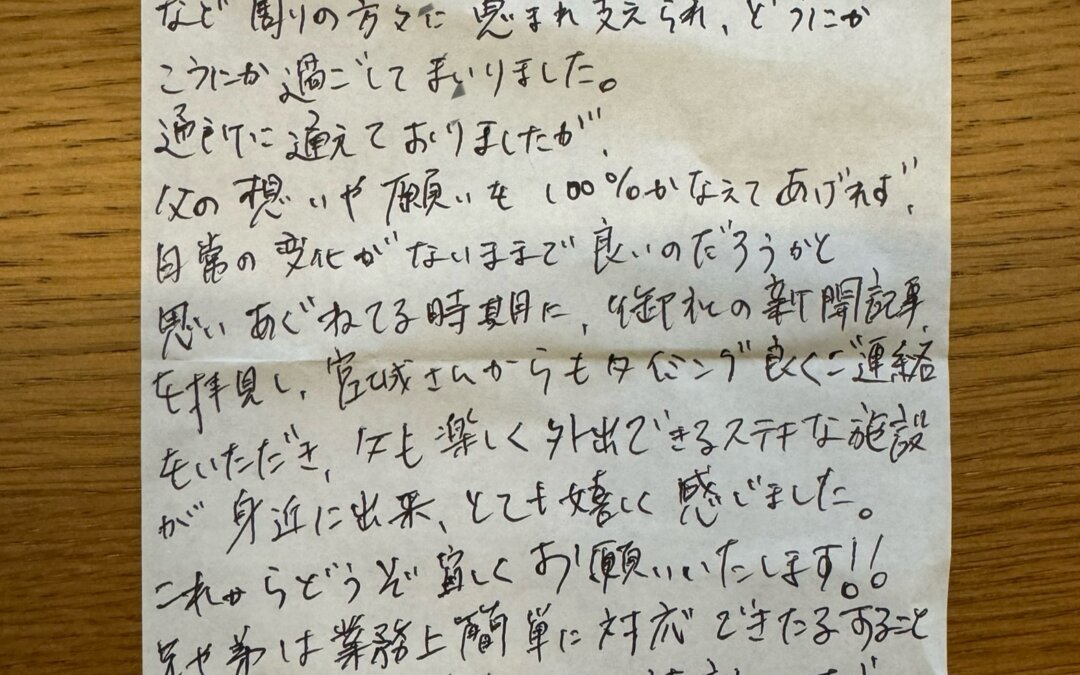 など周りの方々に恵まれ支えられ、どうにか
こうにか過ごしてまいりました。
通所に通えておりましたが、
父の想いや願いを100%かなえてあげれず、
日常の変化がないままで良いのだろうかと
思いあぐねてる時期に、御社の新聞記事
を拝見し、宮城さんからもタイミング良くご連絡
をいただき、父も楽しく外出できるステキな施設
が身近に出来、とても嬉しく感じました。
これからどうぞ宜しくお願いいたします!!
兄や弟は業務上簡単に対応できたりすること